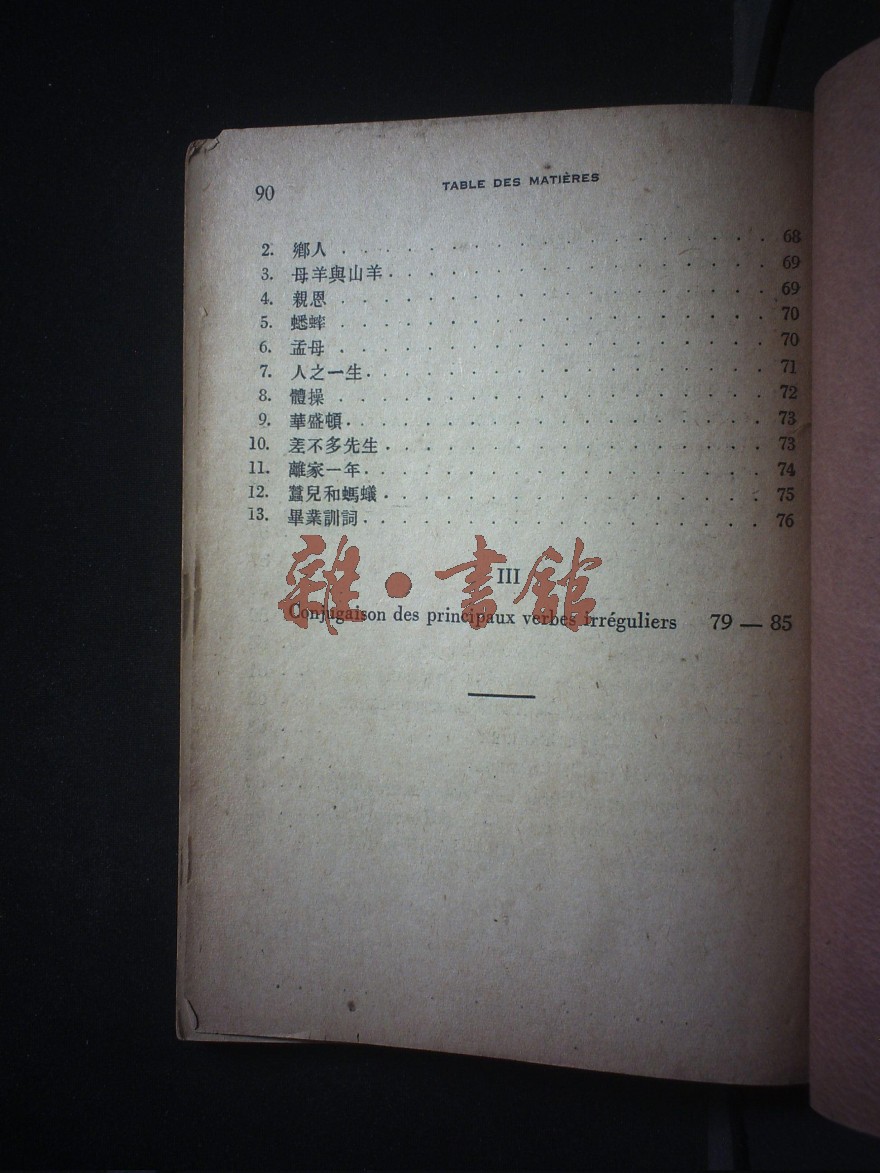 90 TABLE DES MATIÈRES
2. 鄉人 . . . . . . . . . . . . . . . . 68
3. 母羊與山羊 . . . . . . . . . . . . . . 69
4. 親恩 . . . . . . . . . . . . . . . . 69
5. 蟋蟀 . . . . . . . . . . . . . . . . 70
6. 孟母 . . . . . . . . . . . . . . . . 70
7. 人之一生 . . . . . . . . . . . . . . . 71
8. 體操 . . . . . . . . . . . . . . . . 72
9. 華盛頓 . . . . . . . . . . . . . . . . 73
10. 差不多先生 . . . . . . . . . . . . . . 73
11. 離家一年 . . . . . . . . . . . . . . . 74
12. 蠶兒和螞蟻 . . . . . . . . . . . . . . 75
13. 畢業訓詞 . . . . . . . . . . . . . . . 76
雜·書館
III
Conjugaison des principaux verbes irréguliers 79 — 85